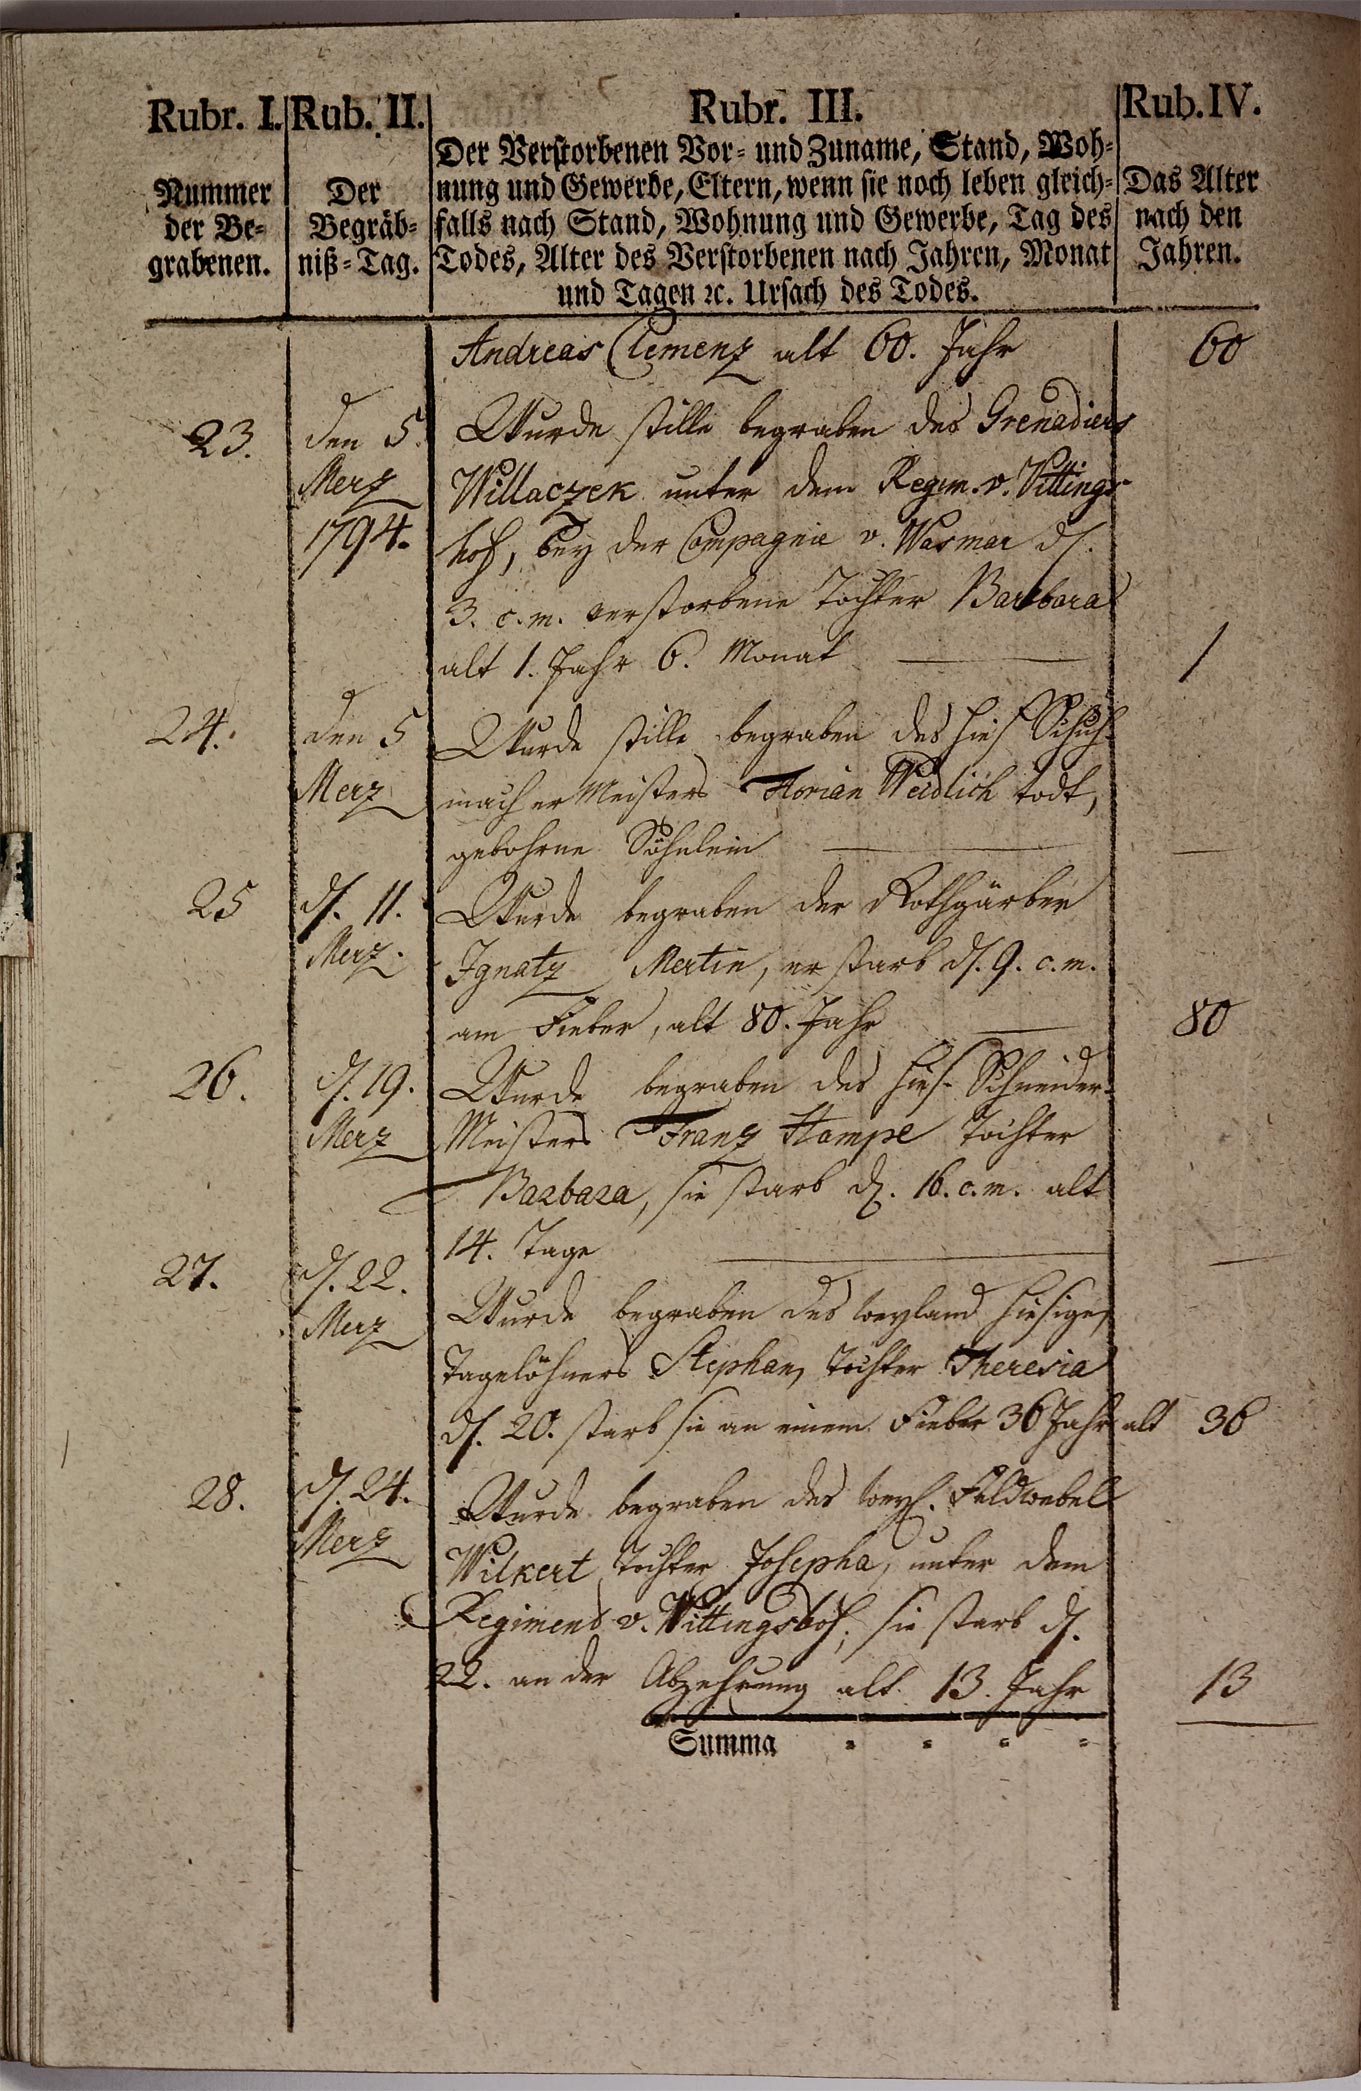 Rubr. I. Rub. II. Rubr. III. Rub. IV.
Nummer der Be-
grabenen.
Der
Begräb-
niß-Tag.
Der Verstorbenen Vor- und Zuname, Stand, Woh-
nung und Gewerbe, Eltern, wenn sie noch leben gleich-
falls nach Stand, Wohnung und Gewerbe, Tag des
Todes, Alter des Verstorbenen nach Jahren, Monat
und Tagen ꝛc. Ursach des Todes.
Das Alter
nach den
Jahren.
Andreas Clemenz alt 60. Jahr 60
23. den 5. Wurde stille begraben des Grenadiers
Merz Willaczek unter dem Regim. v. Vittings-
1794. hof, bey der Compagnie v. Wasmar d.
3. c. m. verstorbene Tochter Barbara
alt 1. Jahr 6. Monat 1
24. den 5 Wurde stille begraben des hies. Schuh-
Merz macher Meisters Florian Weidlich todt,
gebohrne Söhnlein
25 d. 11. Wurde begraben der Rothgärber
Merz. Ignatz Mertin, er starb d. 9. c. m.
am Fieber, alt 80. Jahr 80
26. d. 19. Wurde begraben des hies. Schneider-
Merz Meisters Franz Hampe Tochter
Barbara, sie starb d. 16. c. m. alt
14. Tage
27. d. 22. Wurde begraben des weyland hiesigen
Merz Tagelöhners Stephan, Tochter Theresia
d. 20. starb sie an einem Fieber 36 Jahr alt 36
28. d. 24. Wurde begraben des weyl. Feldwebel
Merz Wilkert Tochter Josepha, unter dem
Regiment v. Vittingshof, sie starb d.
22. an der Abzehrung alt 13. Jahr 13
Summa